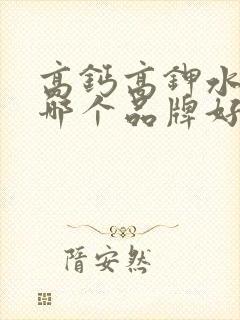 高钙高钾水
哪个品牌好
隋安然